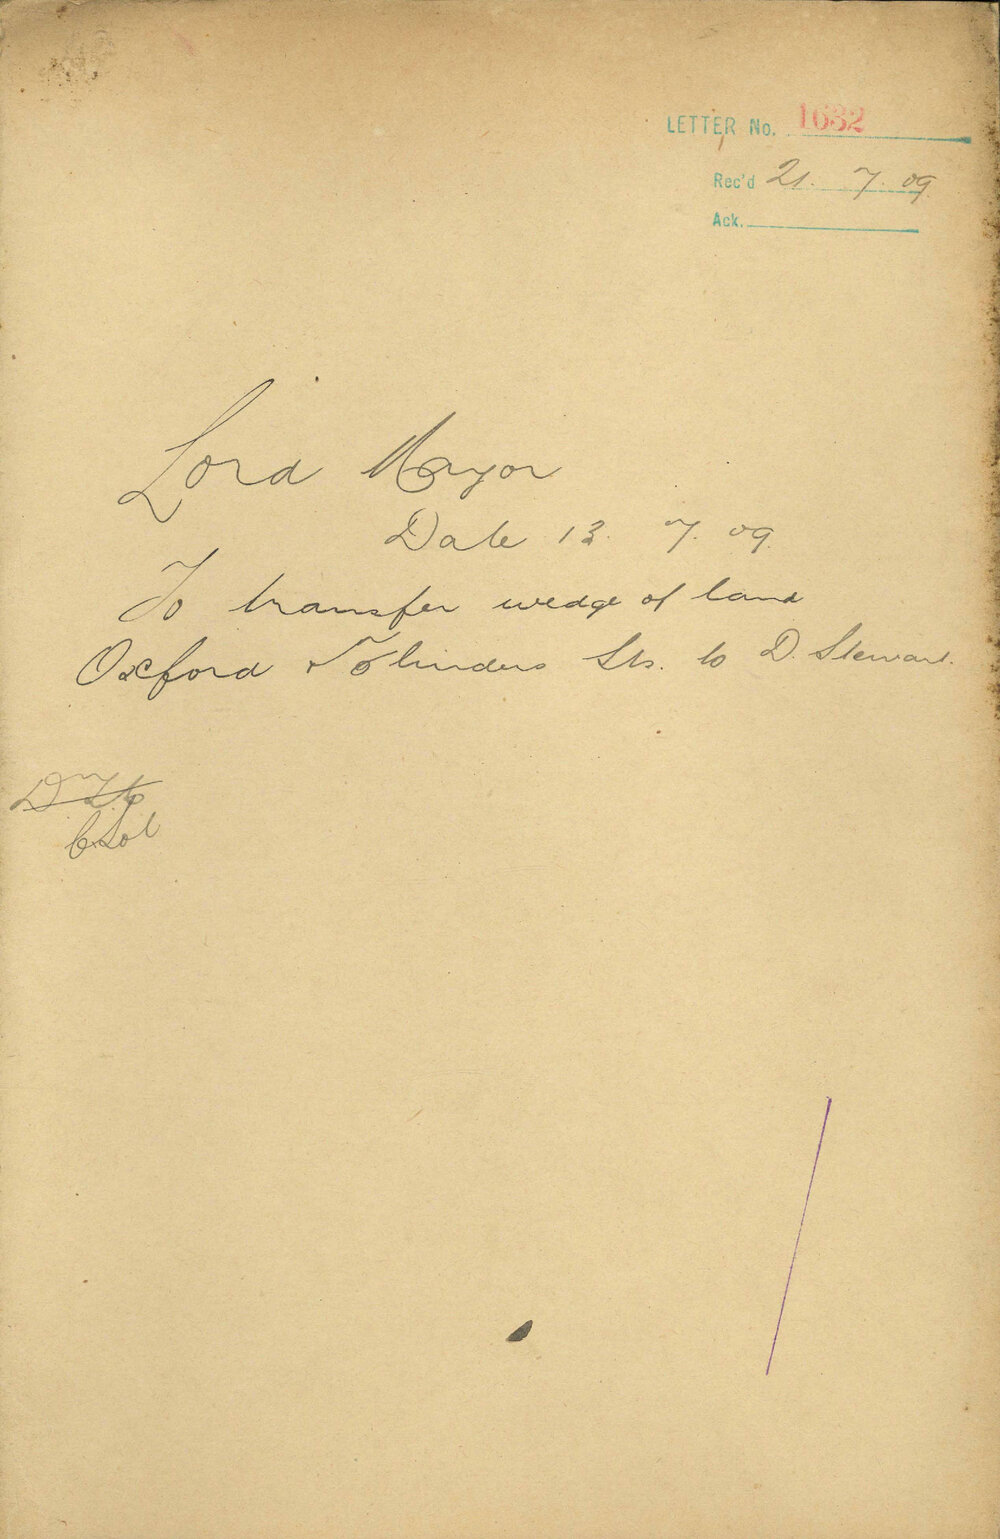 LETTER No. 1632
Rec'd 21. 7. 09.
Ack.
Lord Mayor
Date 13. 7. 09.
To transfer wedge of land
Oxford & Flinders Sts. to D. Stewart.
C Sol